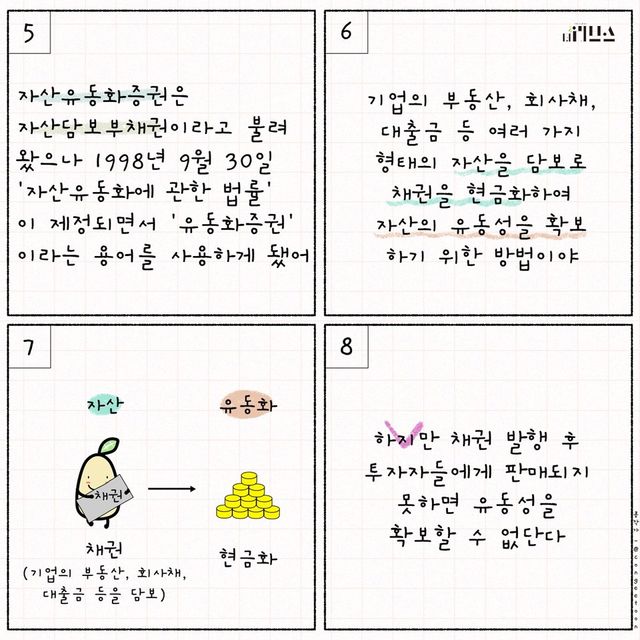 5
자산유동화증권은
자산담보부채권이라고 불려
왔으나 1998년 9월 30일
'자산유동화에 관한 법률'
이 제정되면서 '유동화증권'
이라는 용어를 사용하게 됐어
6
기업의 부동산, 회사채,
대출금 등 여러 가지
형태의 자산을 담보로
채권을 현금화하여
자산의 유동성을 확보
하기 위한 방법이야
7
자산
유동화
채권
채권
(기업의 부동산, 회사채,
대출금 등을 담보)
현금화
8
하지만 채권 발행 후
투자자들에게 판매되지
못하면 유동성을
확보할 수 없단다